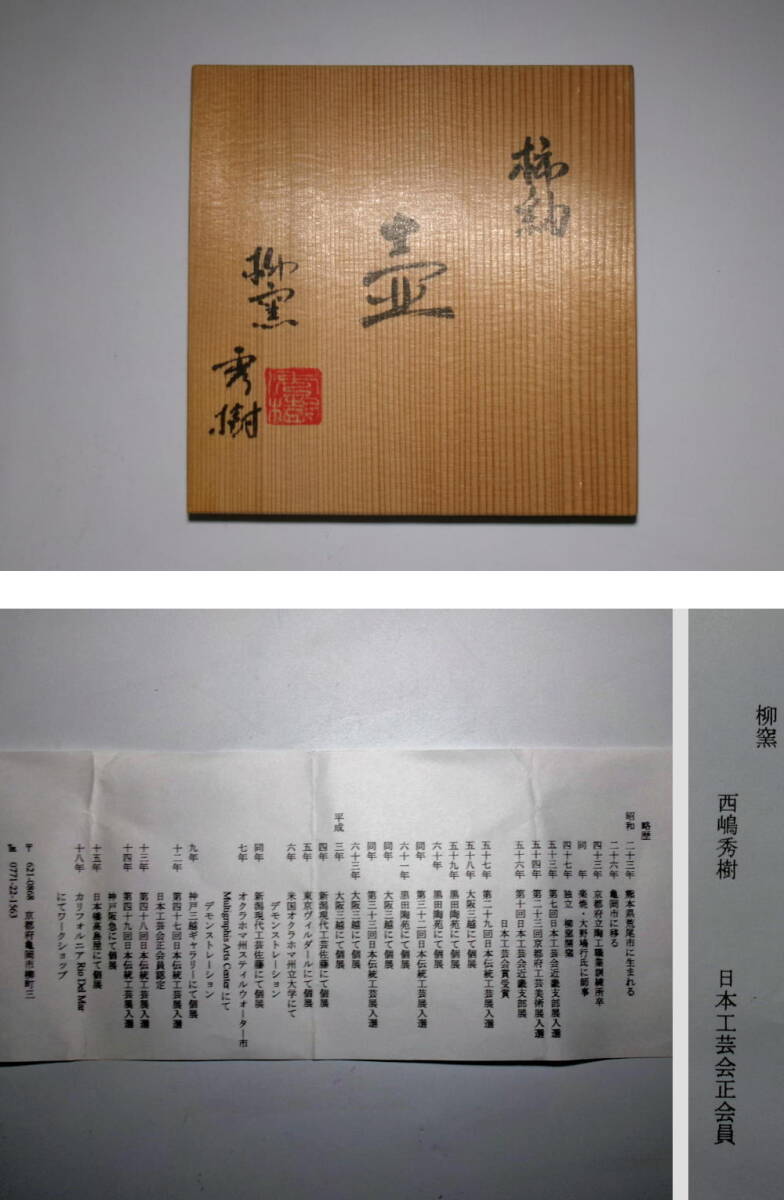 柿釉
壷
柳窯
秀樹
略歴
昭和 二十三年 熊本県荒尾市に生まれる
二十六年 亀岡市に移る
四十三年 京都府立陶工職業訓練所卒
同 年 楽焼・大野場行氏に師事
四十七年 独立 柳窯開窯
五十三年 第七回日本工芸会近畿支部展入選
五十四年 第二十三回京都府工芸美術展入選
五十六年 第十回日本工芸会近畿支部展
日本工芸会賞受賞
五十七年 第二十九回日本伝統工芸展入選
五十八年 大阪三越にて個展
五十九年 黒田陶苑にて個展
六十年 黒田陶苑にて個展
同年 第三十二回日本伝統工芸展入選
六十一年 黒田陶苑にて個展
同年 大阪三越にて個展
同年 第三十三回日本伝統工芸展入選
六十三年 大阪三越にて個展
平成 三年 大阪三越にて個展
四年 新潟現代工芸佐藤にて個展
五年 東京ヴィルダールにて個展
六年 米国オクラホマ州立大学にて
デモンストレーション
同年 新潟現代工芸佐藤にて個展
七年 オクラホマ州スティルウオーター市
Multographis Arts Center にて
デモンストレーション
九年 神戸三越ギャラリーにて個展
十二年 第四十七回日本伝統工芸展入選
日本工芸会正会員認定
十三年 第四十八回日本伝統工芸展入選
十四年 第四十九回日本伝統工芸展入選
神戸阪急にて個展
十五年 日本橋高島屋にて個展
十八年 カリフォルニア Rio Del Mar
にてワークショップ
〒 621-0868 京都府亀岡市柳町三
Tel 0771-22-1563
柳窯
西嶋秀樹 日本工芸会正会員